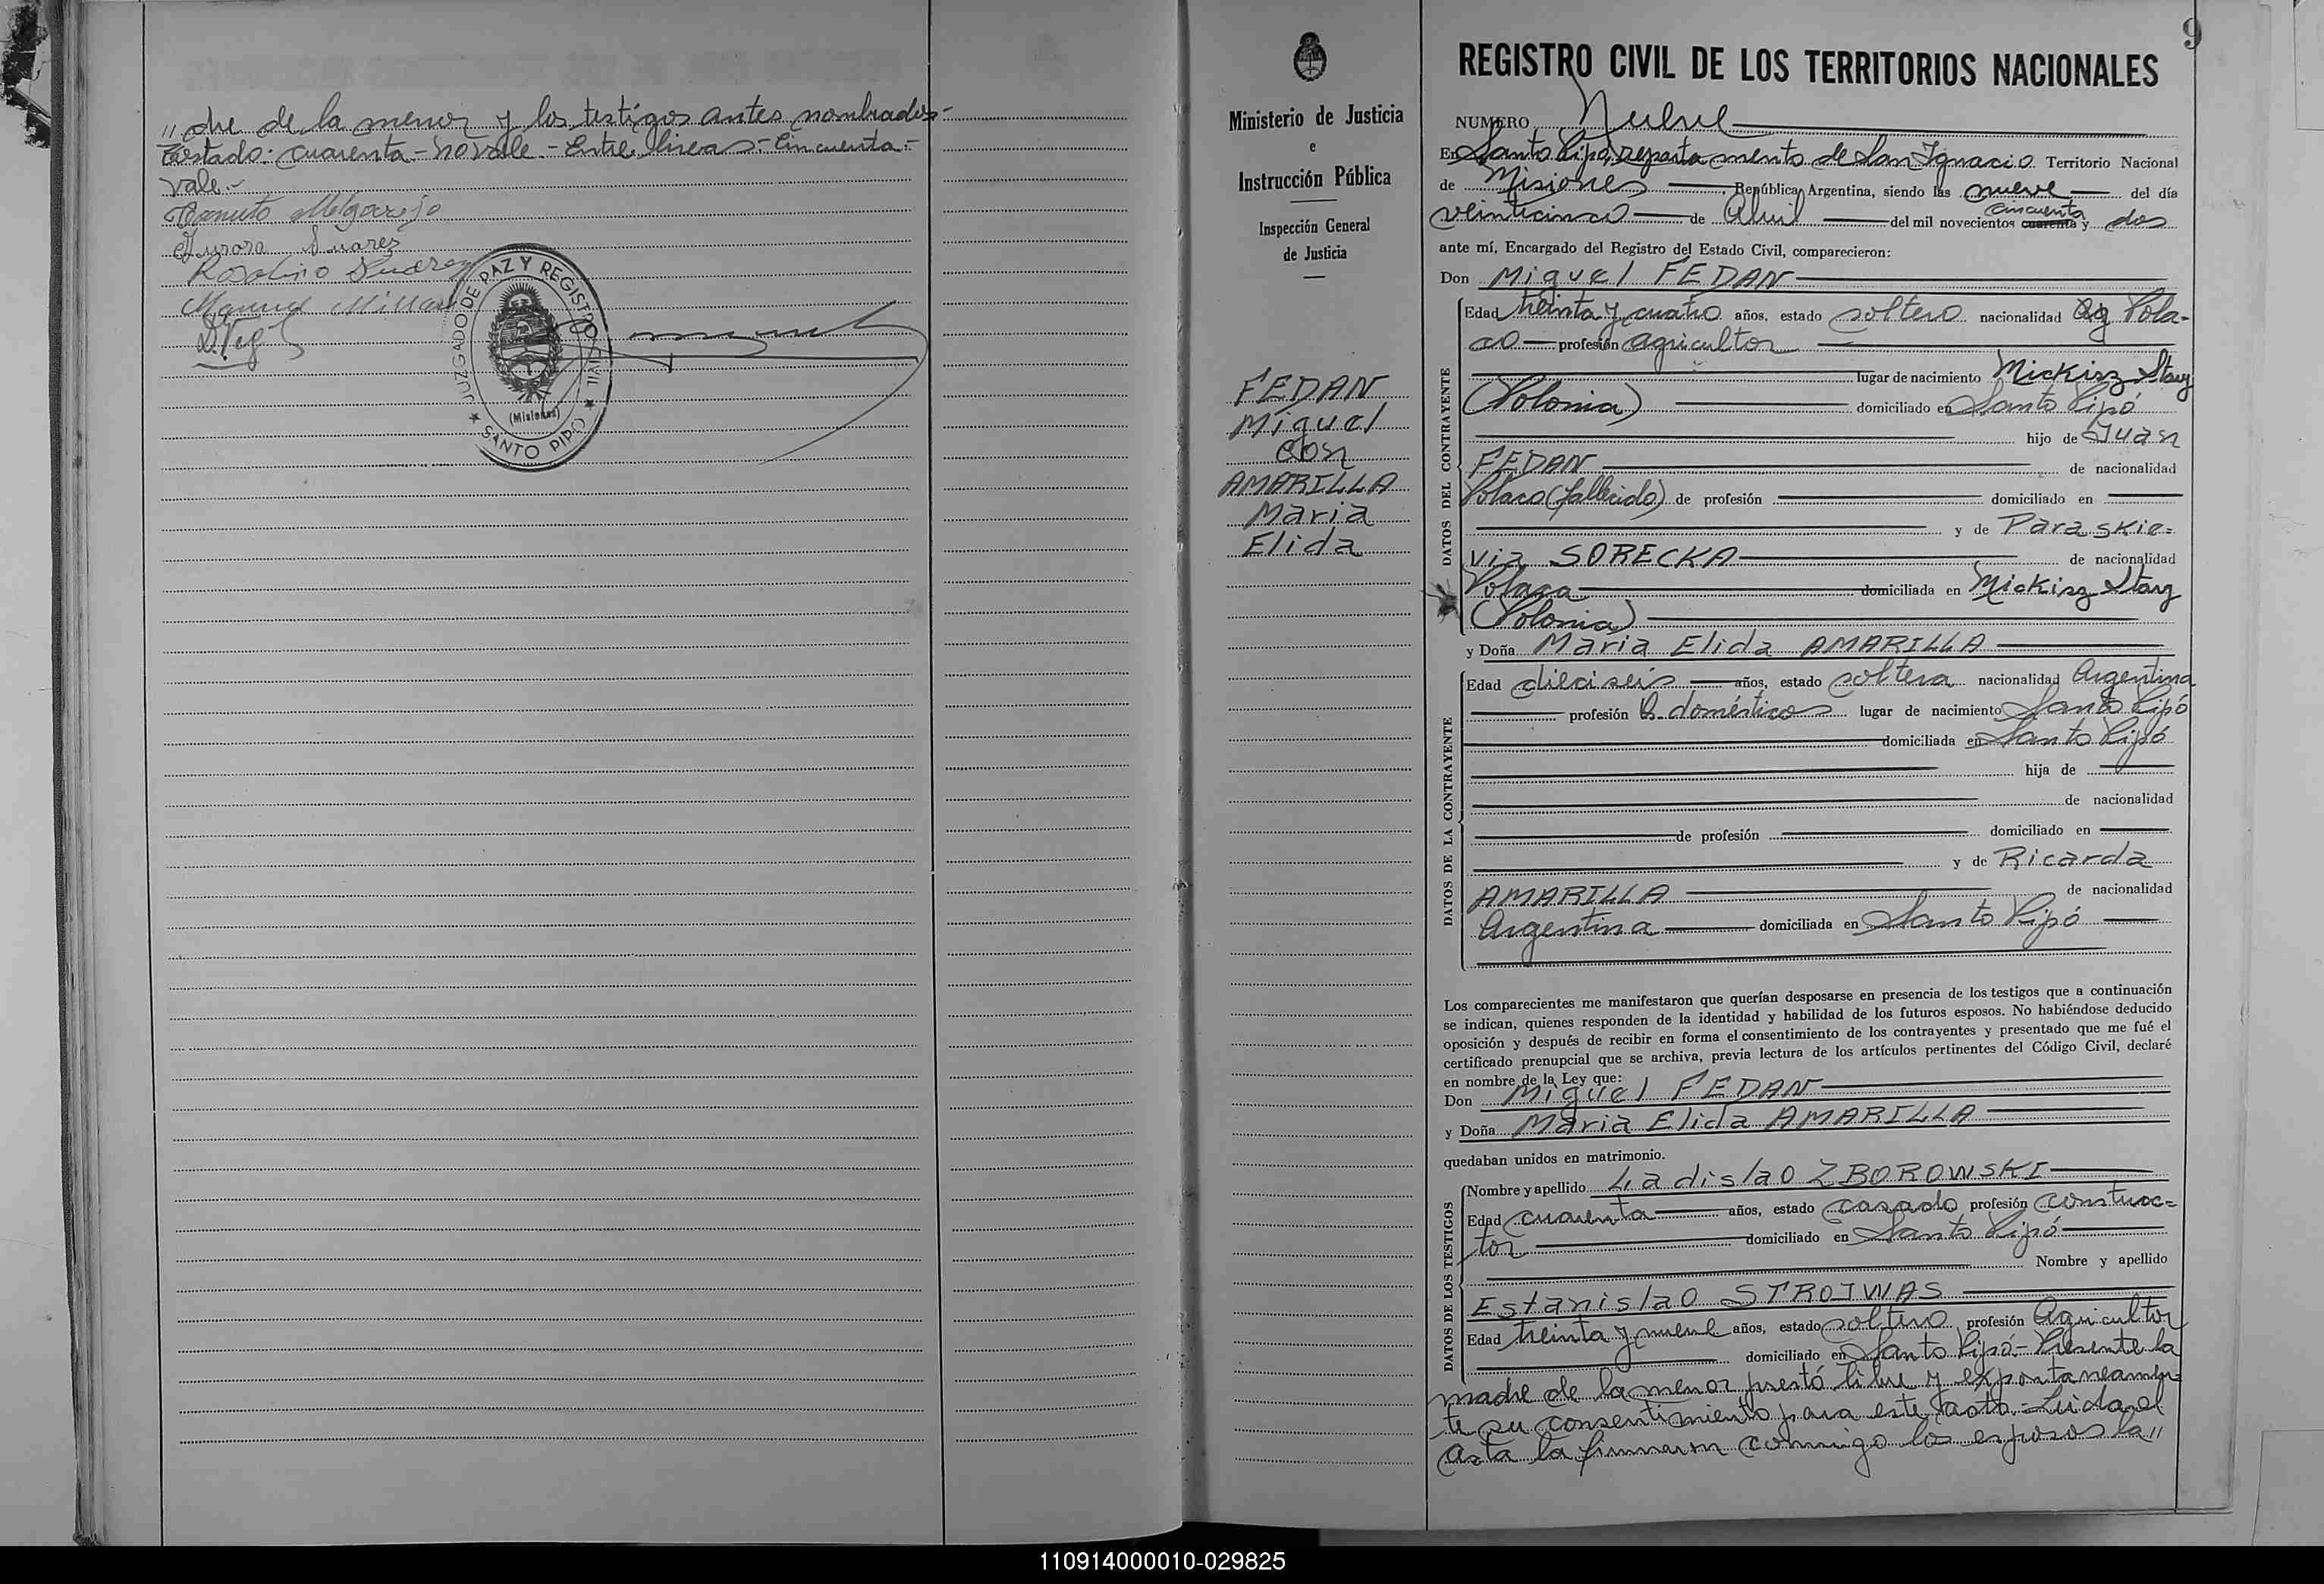 " dre de la menor y los testigos antes nombrados-
Testado: cuarenta-No vale.-Entre lineas-Cincuenta:-
vale.-
Melgarejo
Aurora Suarez
Rosalino Suarez
Manuel
JUZGADO DE PAZ Y REGISTRO CIVIL
(Misiones)
★ SANTO PIPÓ ★
Ministerio de Justicia
e
Instrucción Pública
Inspección General
de Justicia
FEDAN
Miguel
con
AMARILLA
Maria
Elida
9
REGISTRO CIVIL DE LOS TERRITORIOS NACIONALES
NUMERO Nueve
En Santo Pipó, departamento de San Ignacio Territorio Nacional
de Misiones, República Argentina, siendo las nueve del día
cincuenta
veinticinco de Abril del mil novecientos cuarenta y dos
ante mí, Encargado del Registro del Estado Civil, comparecieron:
Don Miguel FEDAN
DATOS DEL CONTRAYENTE
Edad treinta y cuatro años, estado soltero nacionalidad Pola-
co profesión agricultor
lugar de nacimiento Mickisz Stary
(Polonia) domiciliado en Santo Pipó
hijo de Juan
FEDAN de nacionalidad
Polaco (fallecido) de profesión domiciliado en
y de Paraskie=
via SORECKA de nacionalidad
Polaca domiciliada en Mickisz Stary
(Polonia)
y Doña Maria Elida AMARILLA
DATOS DE LA CONTRAYENTE
Edad dieciseis años, estado soltera nacionalidad Argentina
profesión Q. domésticos lugar de nacimiento Santo Pipó
domiciliada en Santo Pipó
hija de
de nacionalidad
de profesión domiciliado en
y de Ricarda
AMARILLA de nacionalidad
Argentina domiciliada en Santo Pipó
Los comparecientes me manifestaron que querían desposarse en presencia de los testigos que a continuación
se indican, quienes responden de la identidad y habilidad de los futuros esposos. No habiéndose deducido
oposición y después de recibir en forma el consentimiento de los contrayentes y presentado que me fué el
certificado prenupcial que se archiva, previa lectura de los artículos pertinentes del Código Civil, declaré
en nombre de la Ley que:
Don Miguel FEDAN
y Doña Maria Elida AMARILLA
quedaban unidos en matrimonio.
DATOS DE LOS TESTIGOS
Nombre y apellido Ladislao ZBOROWSKI
Edad cuarenta años, estado casado profesión construc=
tor domiciliado en Santo Pipó
Nombre y apellido
Estanislao STROIWAS
Edad treinta y nueve años, estado soltero profesión Agricultor
domiciliado en Santo Pipó-Presente la
madre de la menor prestó libre y expontaneamen=
te su consentimiento para este acto.-Leida el
acta la firmaron conmigo los esposos la "
110914000010-029825